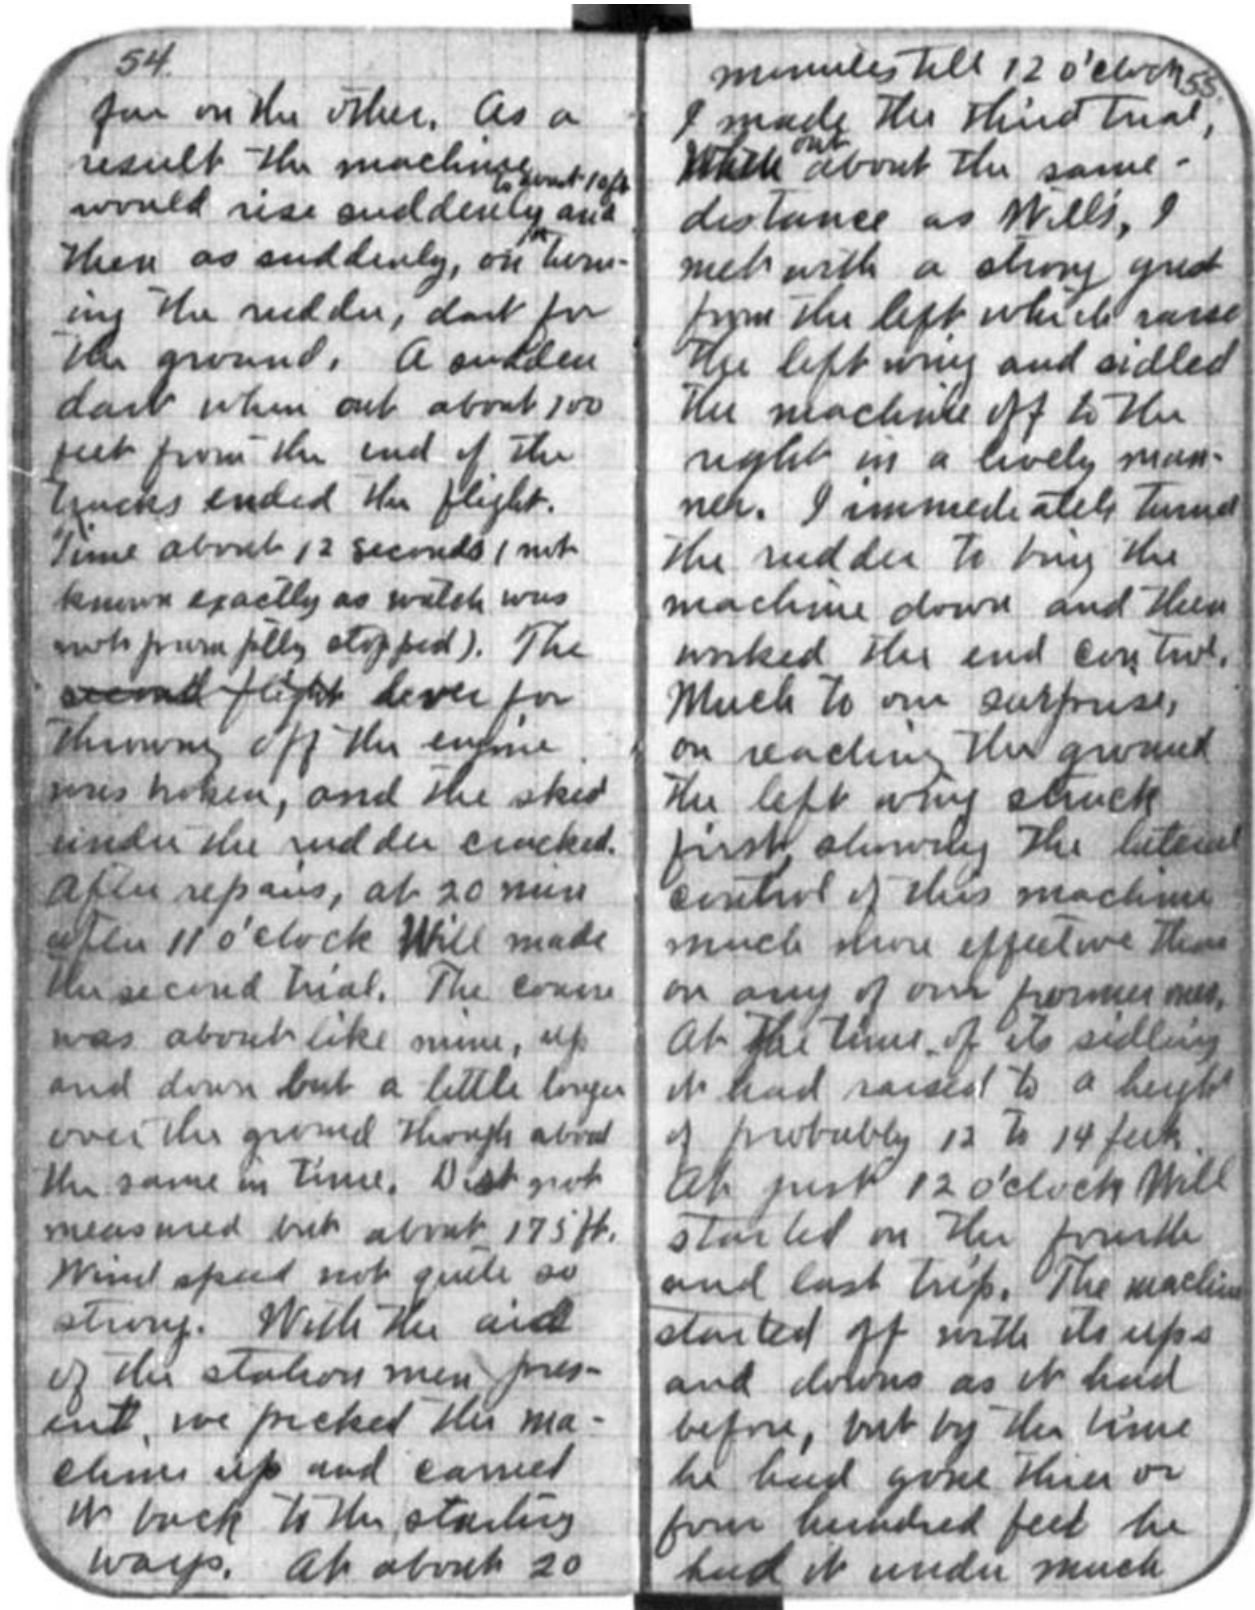 54.
far on the other. As a
result the machine
would rise suddenly to about 10 ft. and
then as suddenly, on turn-
ing the rudder, dart for
the ground. A sudden
dart when out about 100
feet from the end of the
tracks ended the flight.
Time about 12 seconds (not
known exactly as watch was
not promptly stopped). The
second flight lever for
throwing off the engine
was broken, and the skid
under the rudder cracked.
After repairs, at 20 min
after 11 o'clock Will made
the second trial. The course
was about like mine, up
and down but a little longer
over the ground though about
the same in time. Dist. not
measured but about 175 ft.
Wind speed not quite so
strong. With the aid
of the station men pres-
ent, we picked the ma-
chine up and carried
it back to the starting
ways. At about 20
55.
minutes till 12 o'clock
I made the third trial,
When out about the same
distance as Will's, I
met with a strong gust
from the left which raised
the left wing and sidled
the machine off to the
right in a lively man-
ner. I immediately turned
the rudder to bring the
machine down and then
worked the end control.
Much to our surprise,
on reaching the ground
the left wing struck
first, showing the lateral
control of this machine
much more effective than
on any of our former ones.
At the time of its sidling
it had raised to a height
of probably 12 to 14 feet.
At just 12 o'clock Will
started on the fourth
and last trip. The machine
started off with its ups
and downs as it had
before, but by the time
he had gone three or
four hundred feet he
had it under much